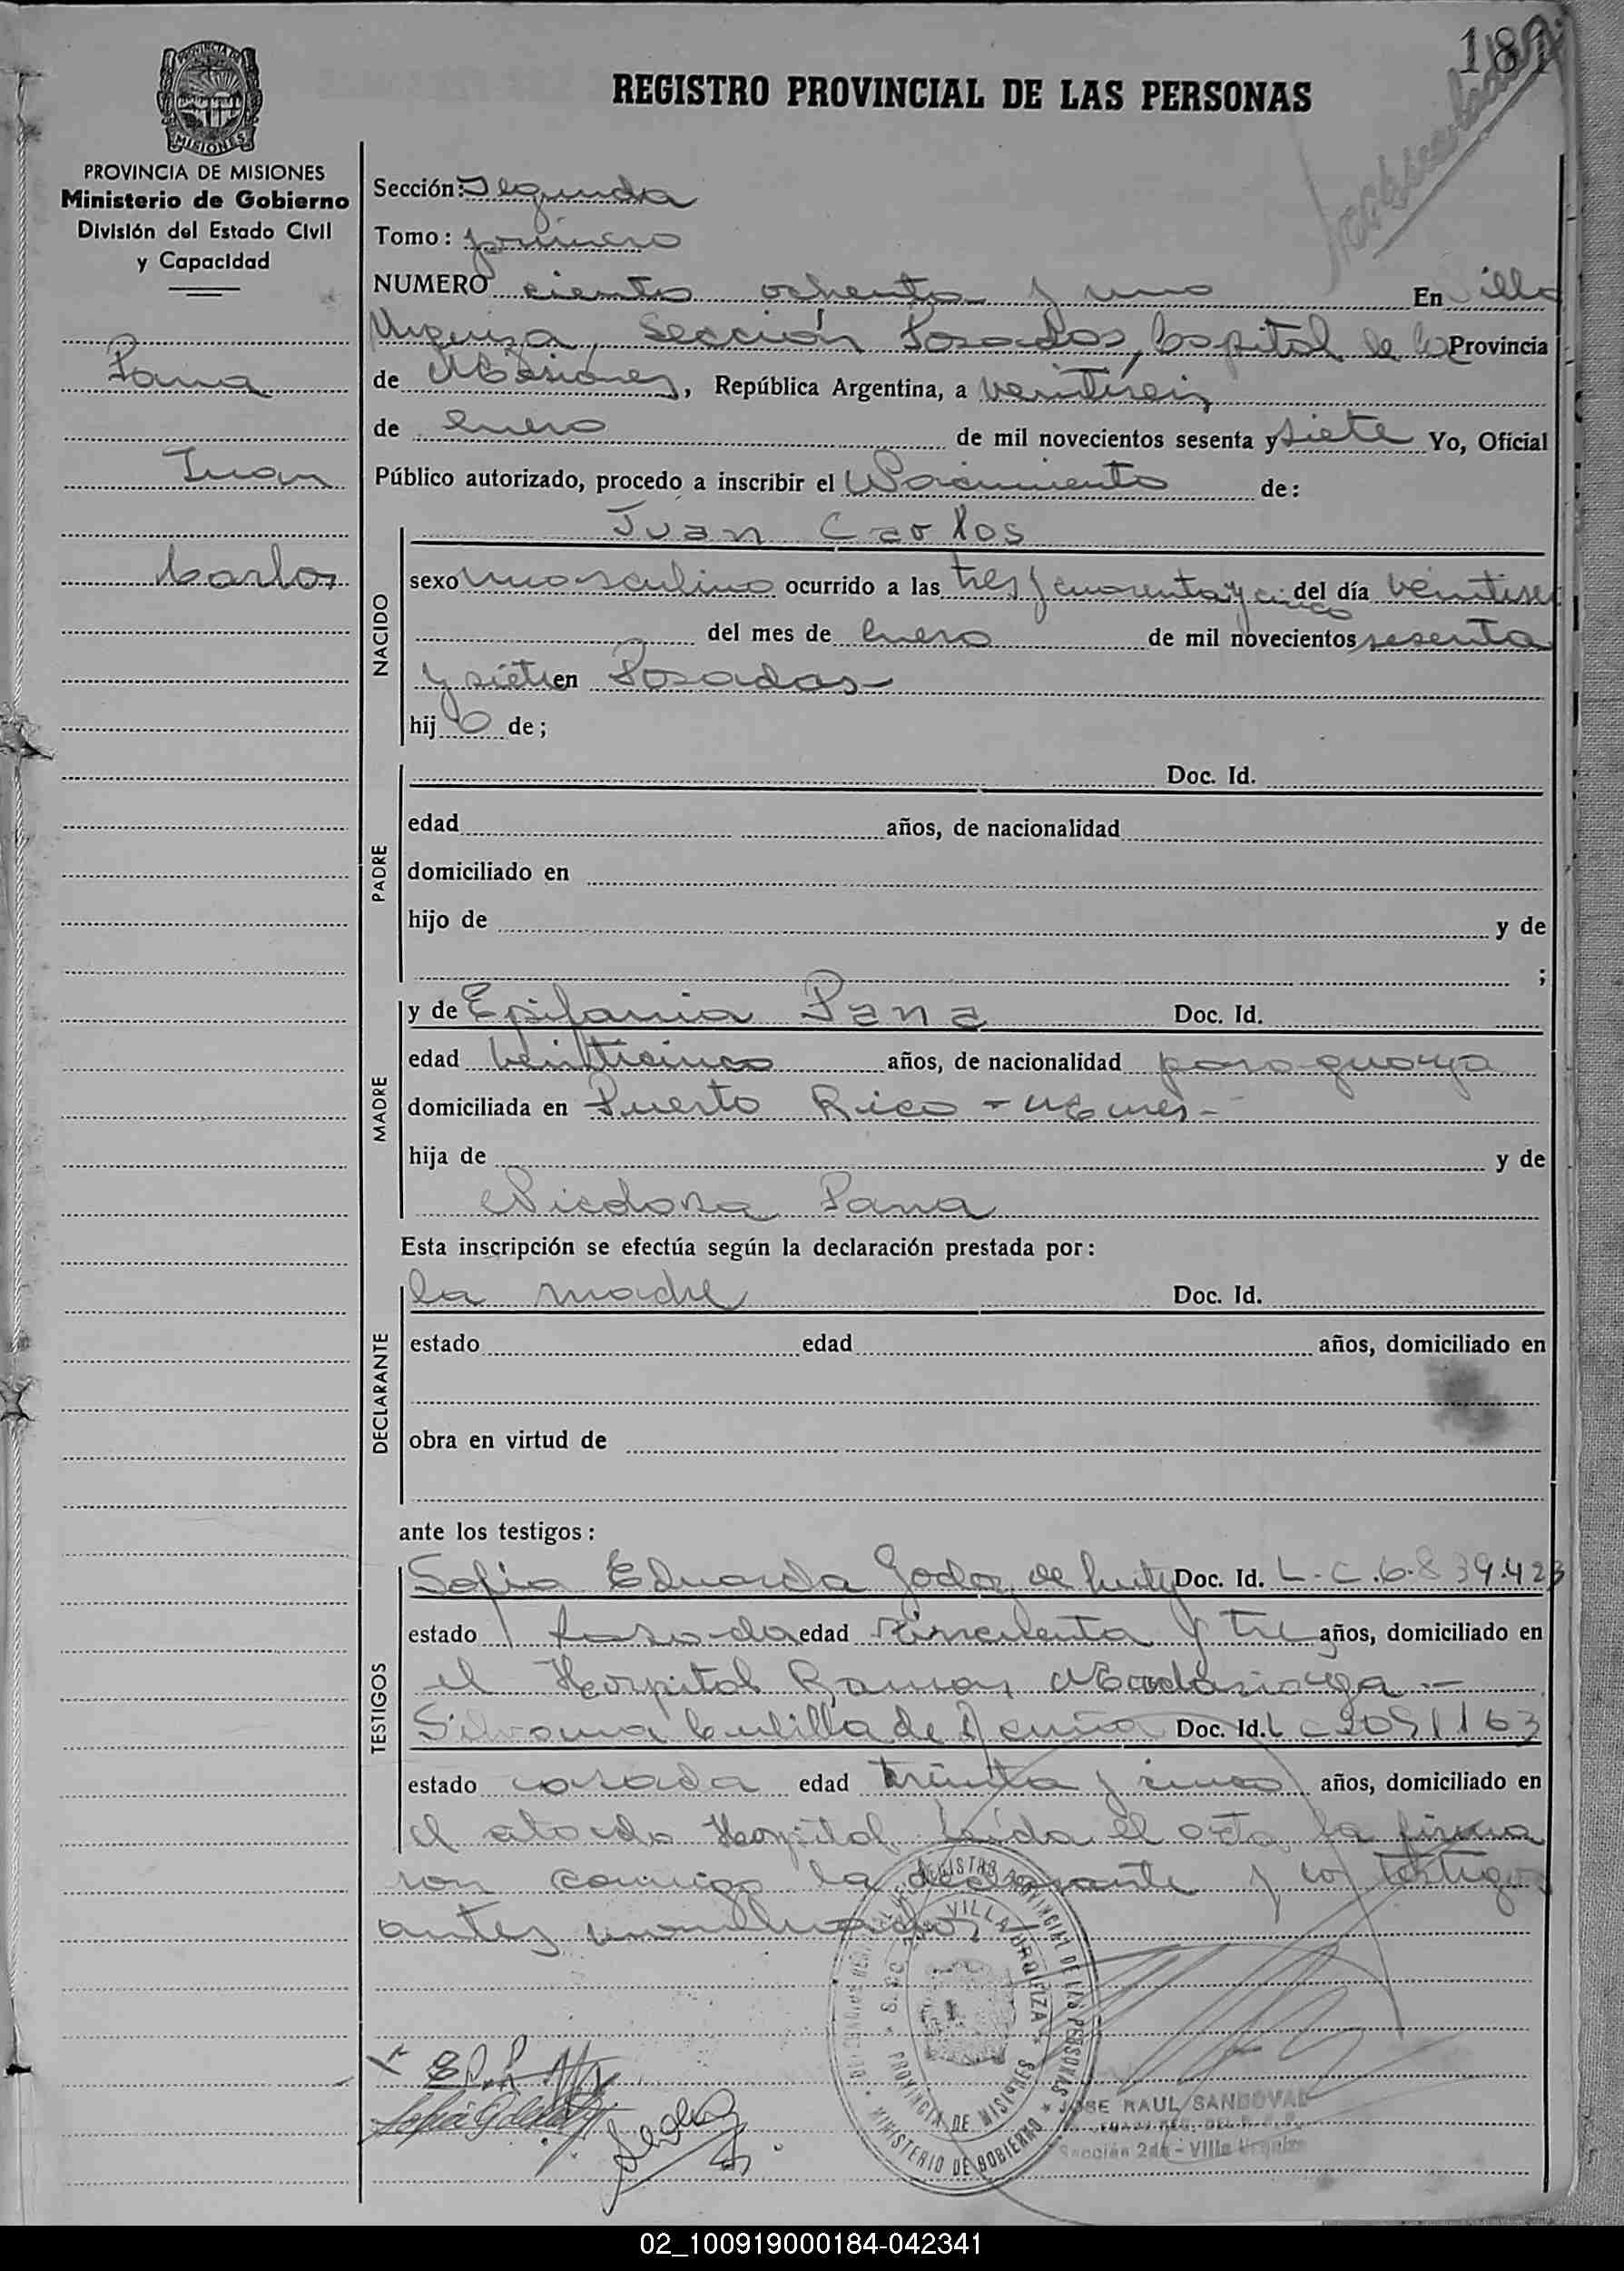 181
REGISTRO PROVINCIAL DE LAS PERSONAS
PROVINCIA DE MISIONES
Ministerio de Gobierno
División del Estado Civil
y Capacidad
Pana
Juan
Carlos
Sección: Segunda
Tomo: primero
NUMERO ciento ochenta y uno En Villa
Urquiza, Sección Posadas, Capital de la Provincia
de Misiones, República Argentina, a veintiseis
de Enero de mil novecientos sesenta y siete Yo, Oficial
Público autorizado, procedo a inscribir el Nacimiento de:
NACIDO
Juan Carlos
sexo masculino ocurrido a las tres y cuarenta y cinco del día veintiseis
del mes de Enero de mil novecientos sesenta
y siete en Posadas
hijo de;
PADRE
Doc. Id.
edad años, de nacionalidad
domiciliado en
hijo de y de
;
MADRE
y de Epifania Pana Doc. Id.
edad veinticinco años, de nacionalidad paraguaya
domiciliada en Puerto Rico - Mnes -
hija de y de
Nicdora Pana
Esta inscripción se efectúa según la declaración prestada por:
DECLARANTE
la madre Doc. Id.
estado edad años, domiciliado en
obra en virtud de
ante los testigos:
TESTIGOS
Sofia Eduarda Godoy de Doc. Id. L.C. 6.839.423
estado casada edad cincuenta y tres años, domiciliado en
el Hospital Ramon Madariaga -
Silvana de Acuña Doc. Id. L C 2051163
estado casada edad treinta y cinco años, domiciliado en
el citado Hospital Leída el acta la firma
ron conmigo la declarante y los testigos
antes nombrados
REGISTRO PROVINCIAL DE LAS PERSONAS
VILLA URQUIZA
PROVINCIA DE MISIONES
MINISTERIO DE GOBIERNO
JOSE RAUL SANDOVAL
Sección 2da - Villa Urquiza
02_100919000184-042341